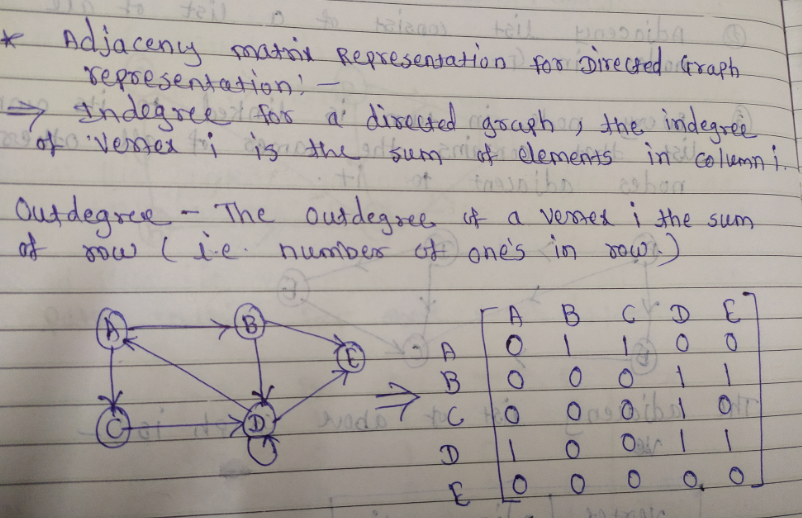 * Adjaceny matrix Representation for Directed Graph
representation: -
⇒ Indegree for a directed graph, the indegree
of vertex i is the sum of elements in column i.
Outdegree - The outdegree of a vertex i the sum
of row (i.e. number of one's in row.)
A B C D E
A 0 1 1 0 0
B 0 0 0 1 1
C 0 0 0 1 0
D 1 0 0 1 1
E 0 0 0 0 0
A B
E
C D
⇒